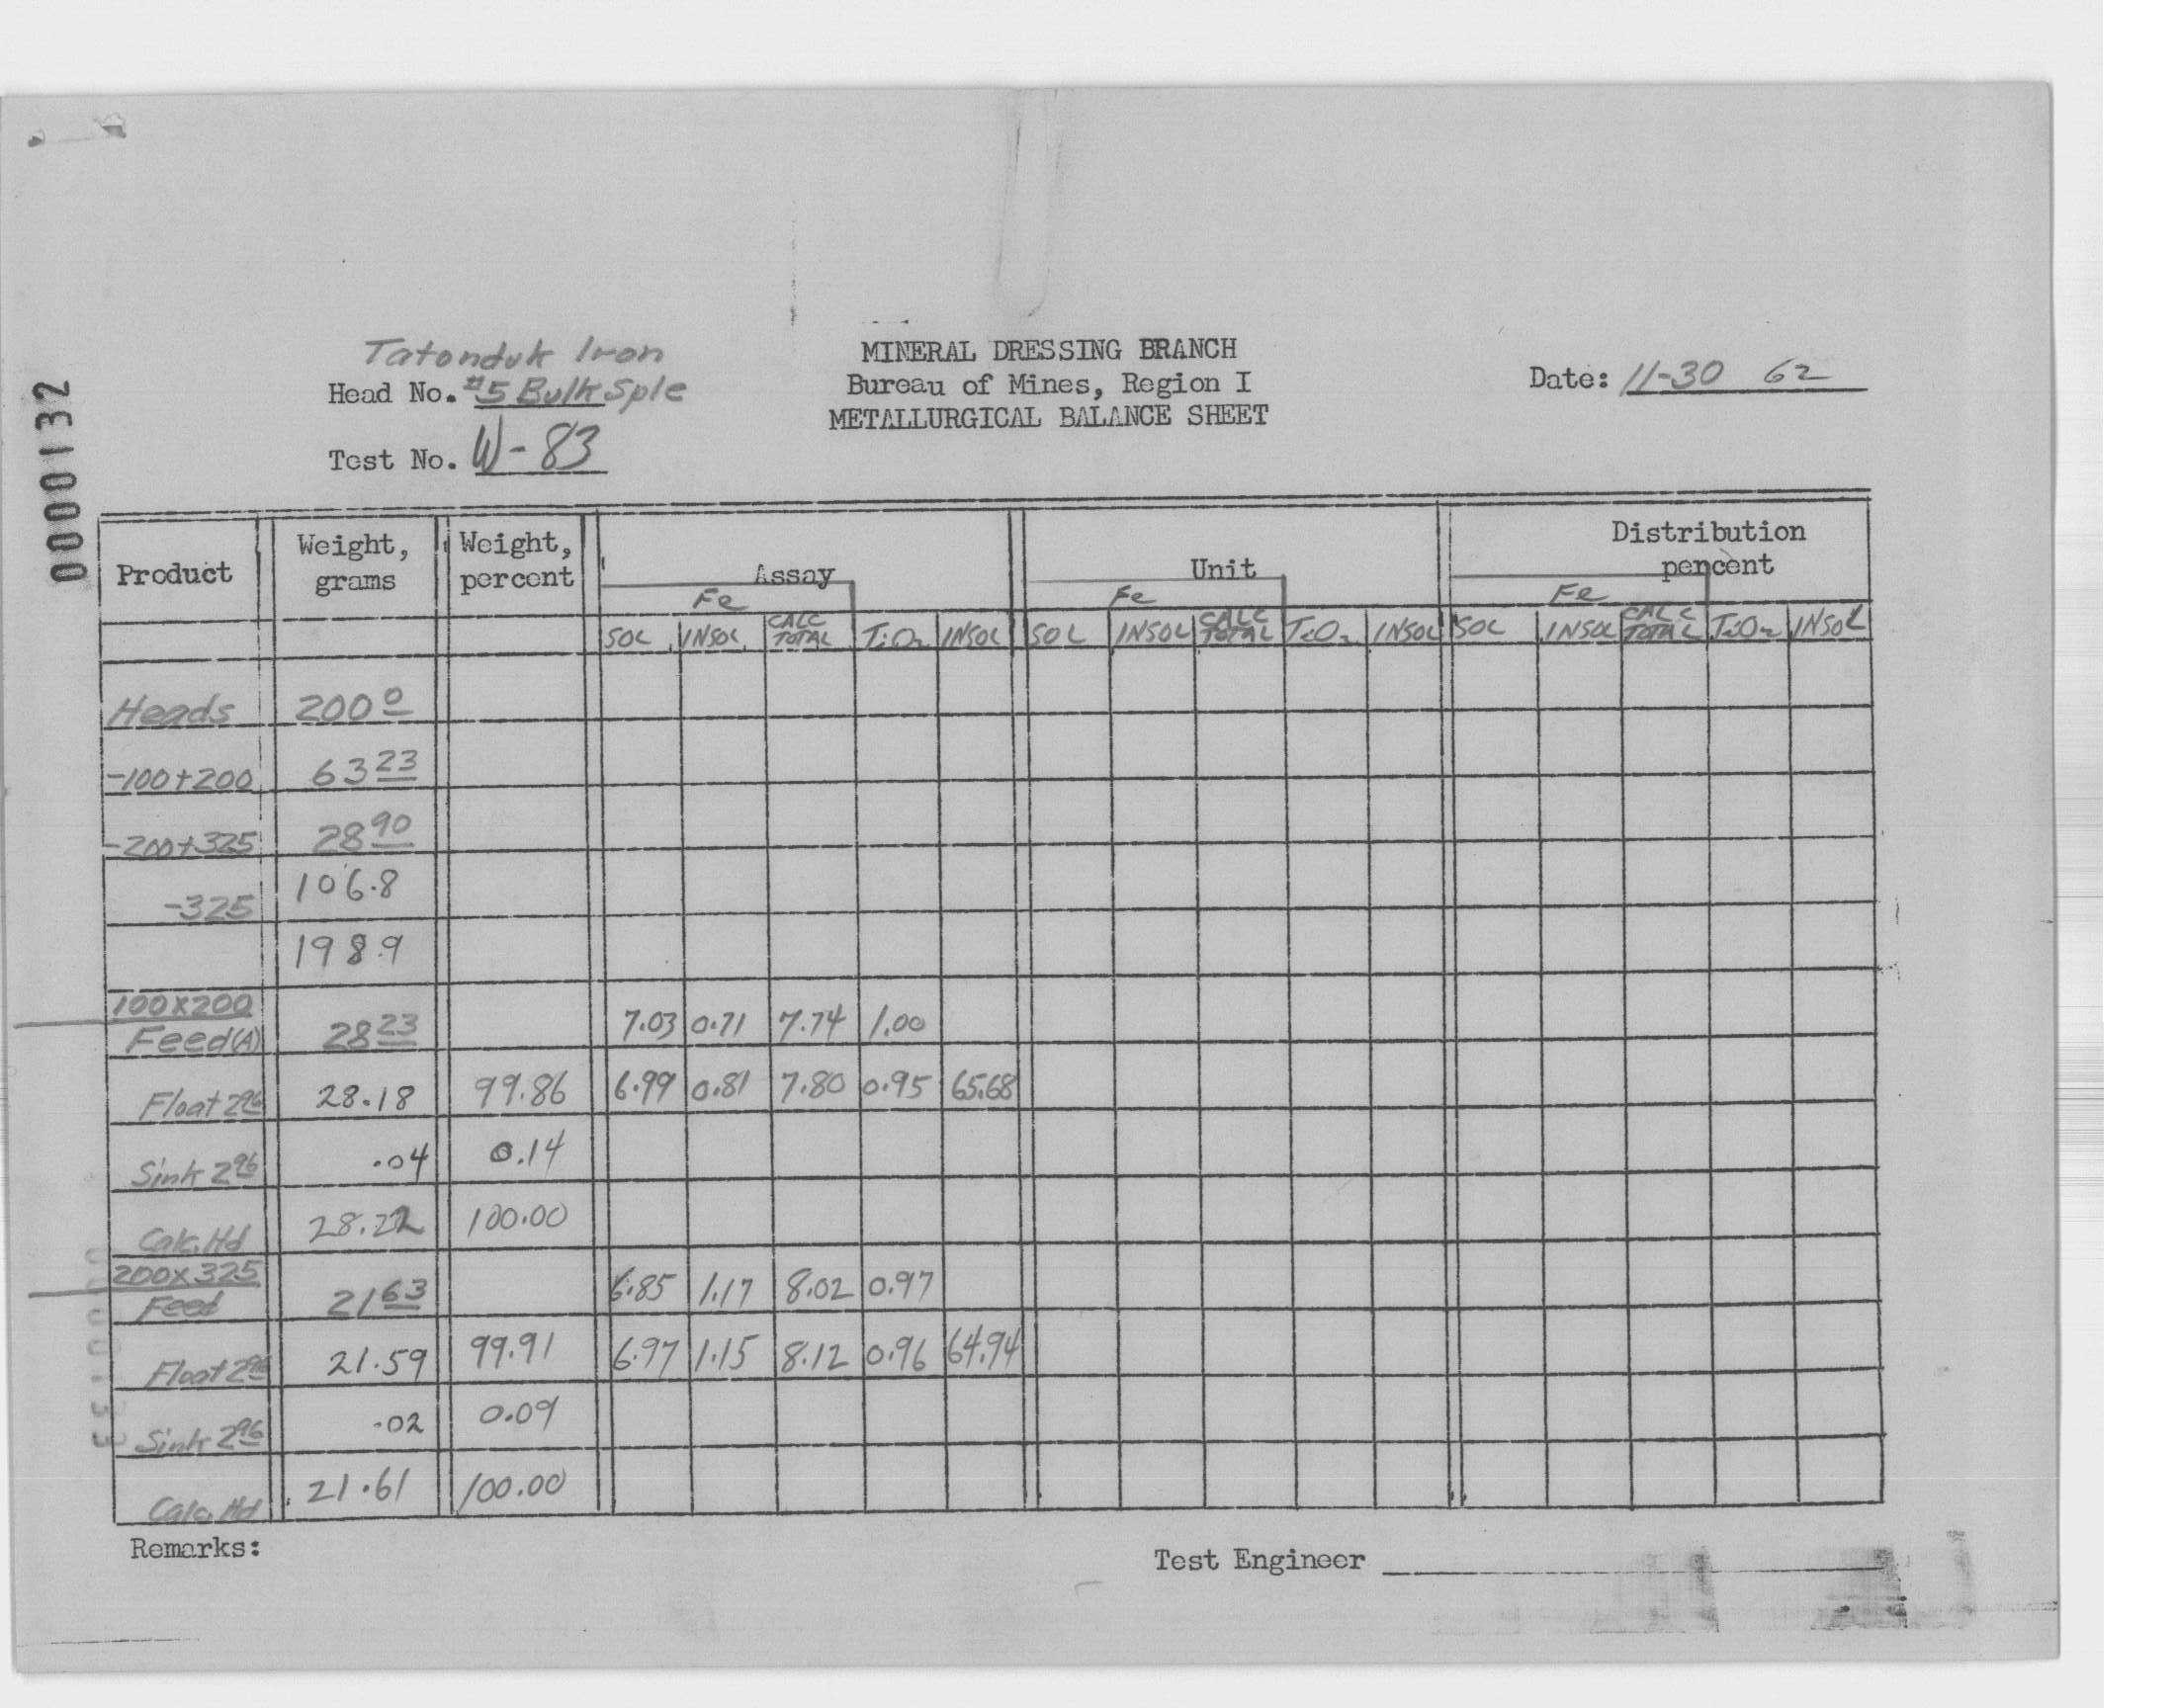 0000132
Tatonduk Iron
Head No. #5 Bulk Sple
Test No. W-83
MINERAL DRESSING BRANCH
Bureau of Mines, Region I
METALLURGICAL BALANCE SHEET
Date: 11-30 62
Product Weight, grams Weight, percent Assay Unit Distribution percent
Fe Fe Fe
SOL INSOL CALC TOTAL TiO2 INSOL SOL INSOL CALC TOTAL TiO2 INSOL SOL INSOL CALC TOTAL TiO2 INSOL
Heads 200 0
-100+200 63 23
-200+325 28 90
-325 106.8
198.9
100x200
Feed(A) 28 23 7.03 0.71 7.74 1.00
Float 2 96 28.18 99.86 6.99 0.81 7.80 0.95 65.68
Sink 2 96 .04 0.14
Calc. Hd 28.22 100.00
200x325
Feed 21 63 6.85 1.17 8.02 0.97
Float 2 96 21.59 99.91 6.97 1.15 8.12 0.96 64.94
Sink 2 96 .02 0.09
Calc. Hd 21.61 100.00
Remarks:
Test Engineer